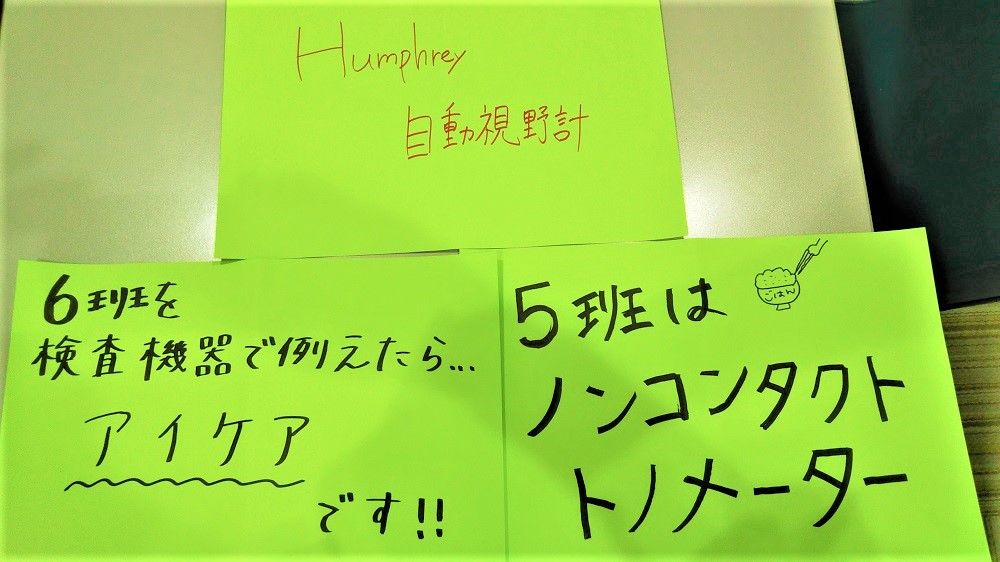 Humphrey
自動視野計
6班を
検査機器で例えたら...
アイケア
です!!
5班は
ごはん
ノンコンタクト
トノメーター